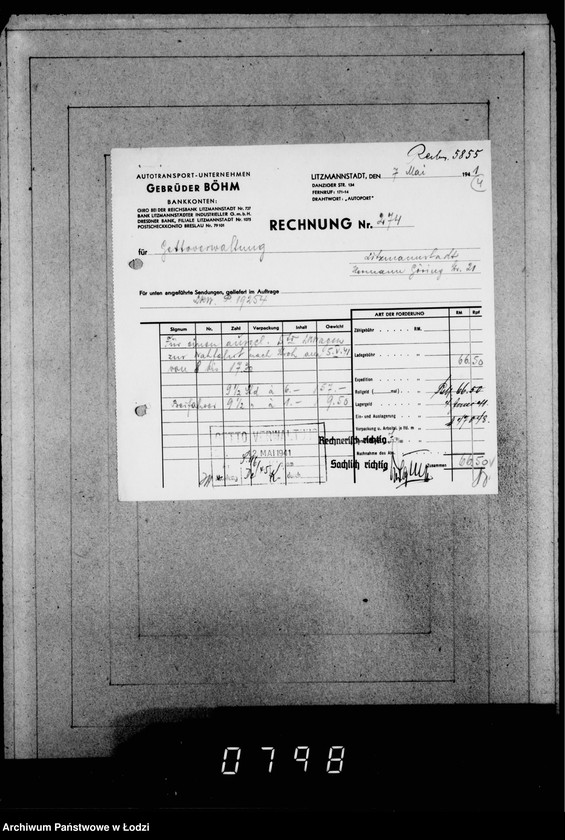 5855
AUTOTRANSPORT-UNTERNEHMEN
GEBRÜDER BÖHM
BANKKONTEN:
GIRO BEI DER REICHSBANK LITZMANNSTADT Nr. 727
BANK LITZMANNSTÄDTER INDUSTRIELLER G. m. b. H.
DRESDNER BANK, FILIALE LITZMANNSTADT Nr. 1075
POSTSCHECKKONTO BRESLAU Nr. 79101
LITZMANNSTADT, DEN 7 Mai 1941
DANZIGER STR. 124
FERNRUF: 171-14
DRAHTWORT: „AUTOPORT"
RECHNUNG Nr. 274
für Gettoverwaltung
Litzmannstadt
Hermann Göring Str. 21
Für unten angeführte Sendungen, geliefert im Auftrage
P 19257
Signum Nr. Zahl Verpackung Inhalt Gewicht
ART DER FORDERUNG RM. Rpf
Für einen
zur nach am 5.V.41
von 8 bis 17.30
9½ Std à 6.— 57.—
Beifahrer 9½ " à 1.— 9.50
Zählgebühr RM.
Ladegebühr 66.50
Expedition
Rollgeld 66.50
Lagergeld
Ein- und Auslagerung
Verpackung u. Arbeitsl. je Std.
Nachnahme
Zusammen 66.50
GETTOVERWALTUNG
MAI 1941
Rechnerisch richtig
Sachlich richtig
0798
Archiwum Państwowe w Łodzi